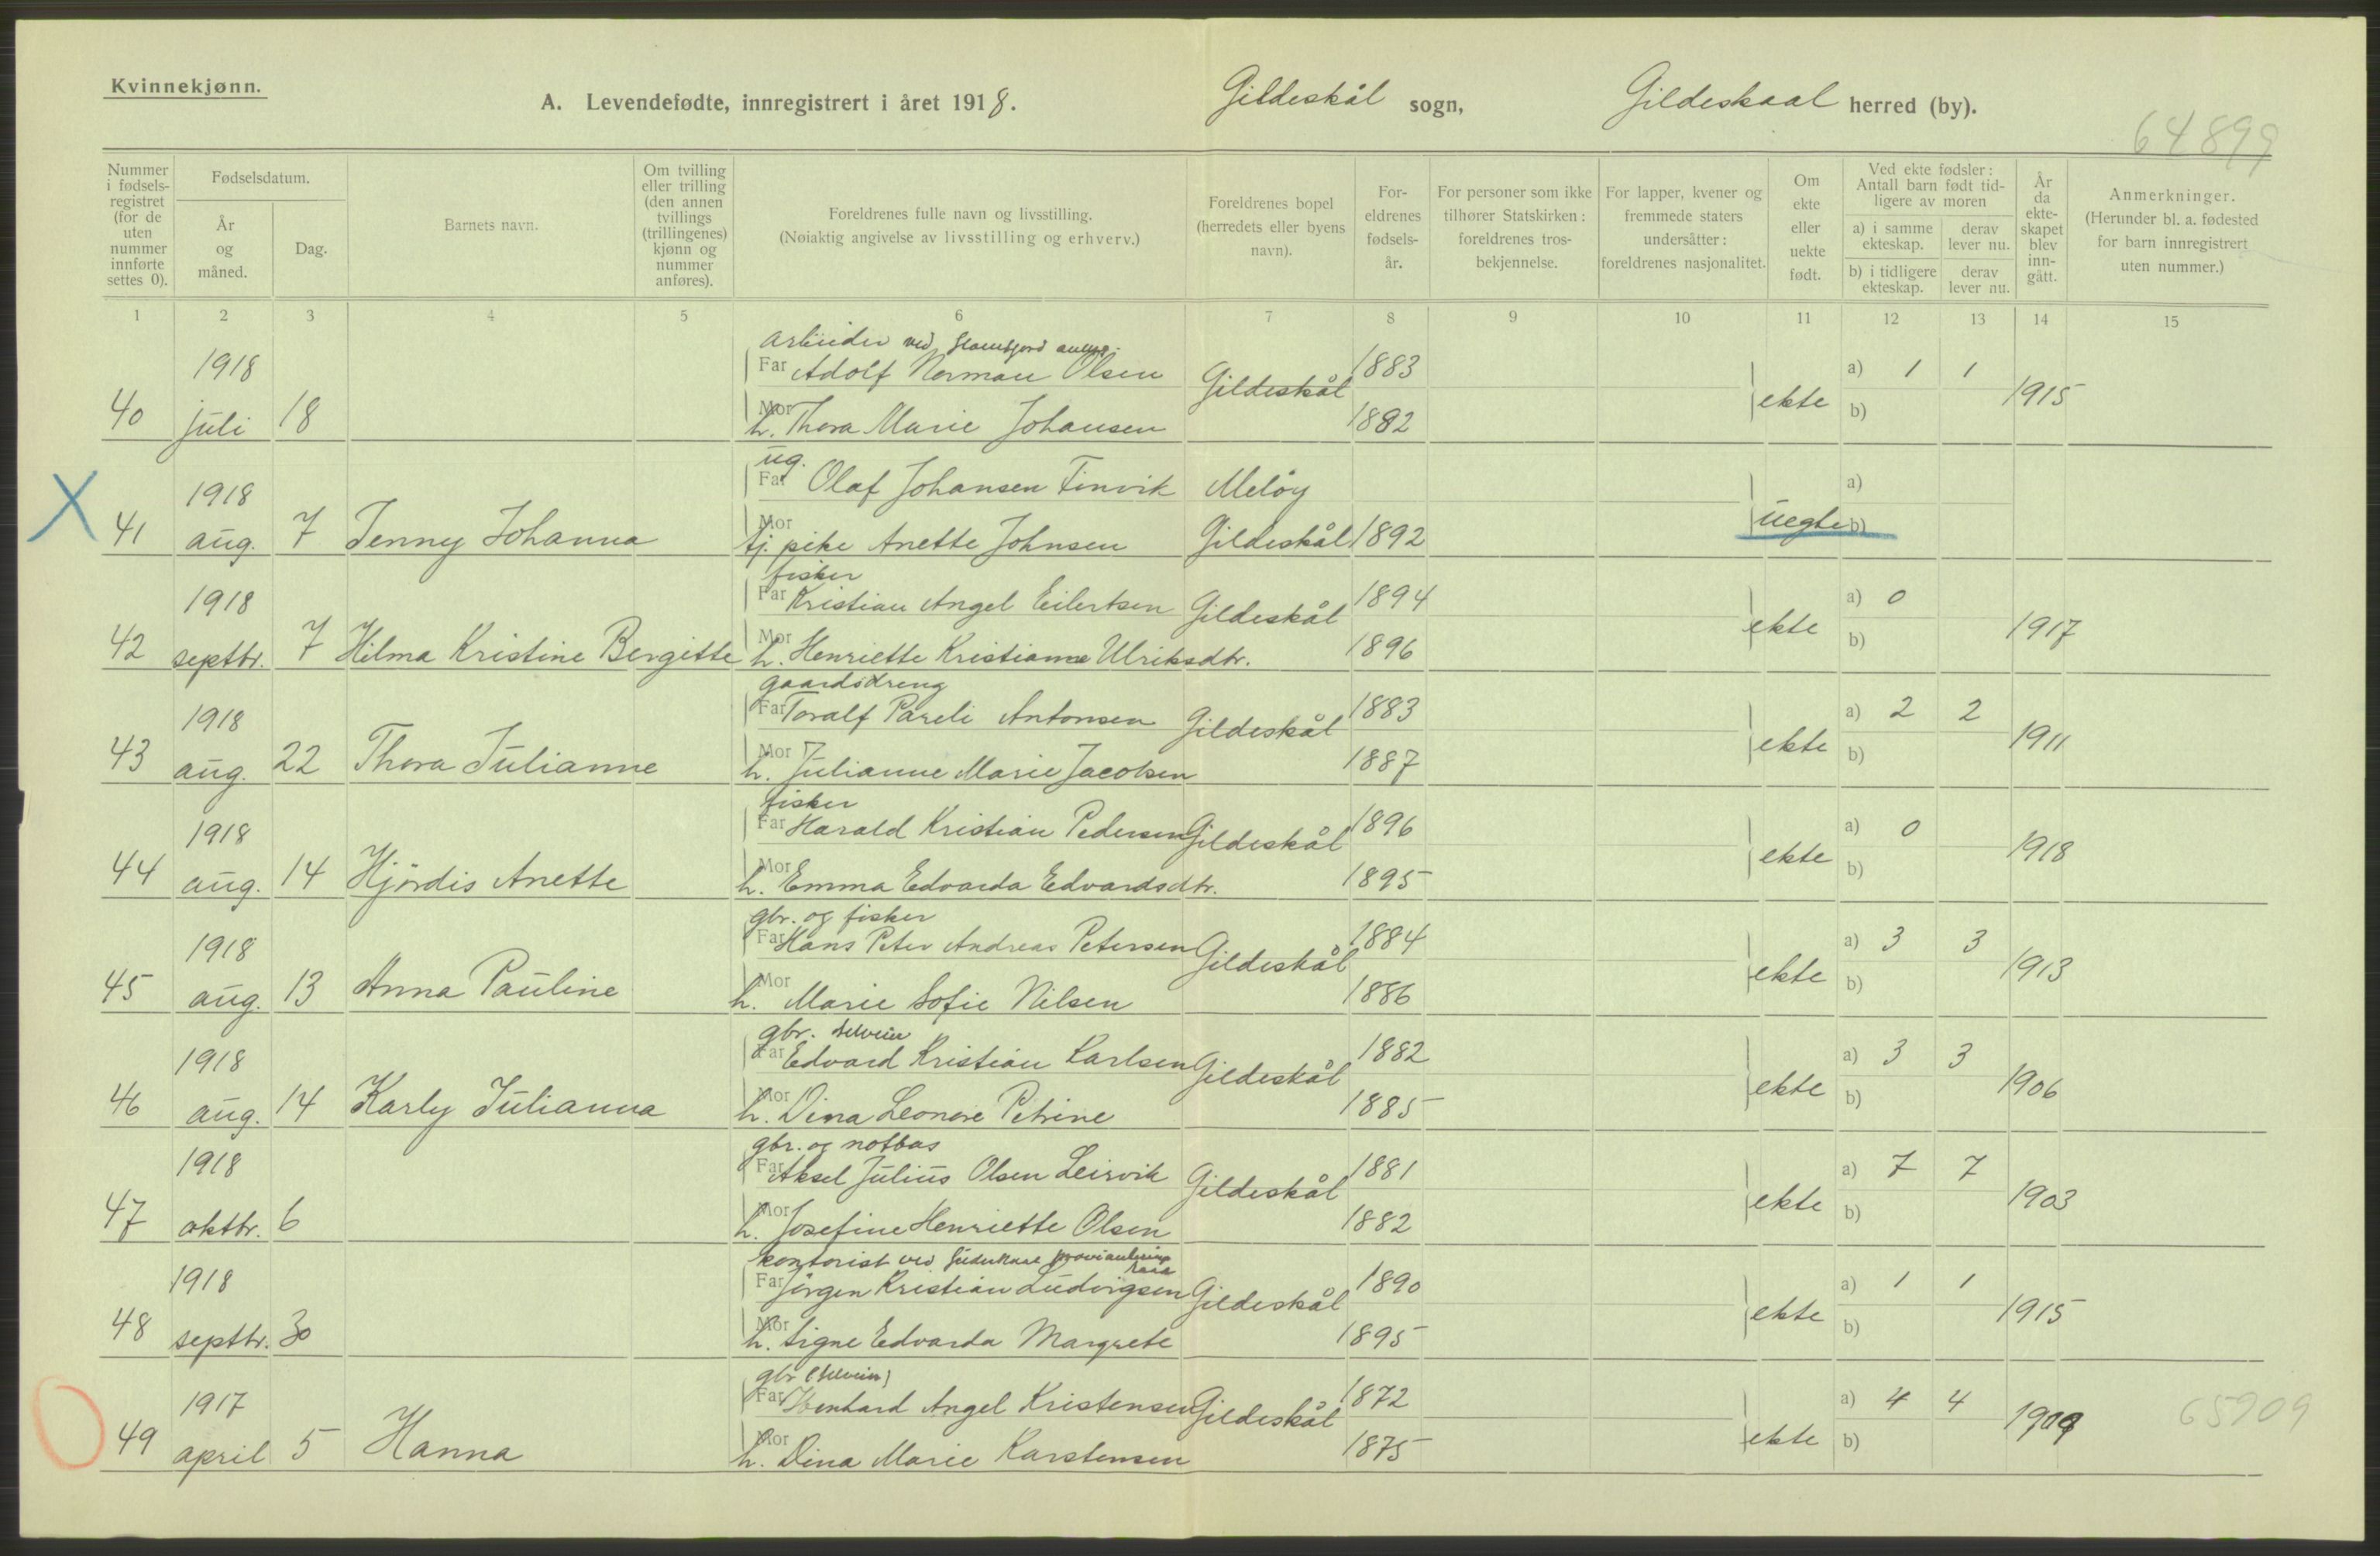 Kvinnekjønn.
A. Levendefødte, innregistrert i året 1918. Gildeskål sogn, Gildeskaal herred (by).
64899
Nummer i fødsels-registret (for de uten nummer innførte settes 0).
Fødselsdatum.
År og måned.
Dag.
Barnets navn.
Om tvilling eller trilling (den annen tvillings (trillingenes) kjønn og nummer anføres).
Foreldrenes fulle navn og livsstilling.
(Nøiaktig angivelse av livsstilling og erhverv.)
Foreldrenes bopel (herredets eller byens navn).
For-eldrenes fødsels-år.
For personer som ikke tilhører Statskirken: foreldrenes tros-bekjennelse.
For lapper, kvener og fremmede staters undersåtter: foreldrenes nasjonalitet.
Om ekte eller uekte født.
Ved ekte fødsler: Antall barn født tid-ligere av moren
a) i samme ekteskap. derav lever nu.
b) i tidligere ekteskap. derav lever nu.
År da ekte-skapet blev inn-gått.
Anmerkninger.
(Herunder bl. a. fødested for barn innregistrert uten nummer.)
1 2 3 4 5 6 7 8 9 10 11 12 13 14 15
arbeider ved Glomfjord
1918 Far Adolf Norman Olsen Gildeskål 1883 a) 1 1
40 juli 18 Mor h. Thora Marie Johansen 1882 ekte b) 1915
ug.
1918 Far Olaf Johansen Finvik Meløy a)
X 41 aug. 7 Jenny Johanna Mor tj. pike Anette Johnsen Gildeskål 1892 uegte b)
fisker
1918 Far Kristian Angel Eilertsen Gildeskål 1894 a) 0
42 septbr. 7 Hilma Kristine Bergitte Mor h. Henriette Kristianne Ulriksdtr. 1896 ekte b) 1917
gaardsdreng
1918 Far Toralf Pareli Antonsen Gildeskål 1883 a) 2 2
43 aug. 22 Thora Julianne Mor h. Julianne Marie Jacobsen 1887 ekte b) 1911
fisker
1918 Far Harald Kristian Pedersen Gildeskål 1896 a) 0
44 aug. 14 Hjördis Anette Mor h. Emma Edvarda Edvardsdtr. 1895 ekte b) 1918
gbr. og fisker
1918 Far Hans Peter Andreas Petersen Gildeskål 1884 a) 3 3
45 aug. 13 Anna Pauline Mor h. Marie Sofie Nilsen 1886 ekte b) 1913
gbr. selveier
1918 Far Edvard Kristian Karlsen Gildeskål 1882 a) 3 3
46 aug. 14 Karly Julianna Mor h. Dina Leonore Petrine 1885 ekte b) 1906
gbr. og notbas
1918 Far Aksel Julius Olsen Leirvik Gildeskål 1881 a) 7 7
47 oktbr. 6 Mor h. Josefine Henriette Olsen 1882 ekte b) 1903
kontorist ved Gildeskaal provianterings raad
1918 Far Jörgen Kristian Ludvigsen Gildeskål 1890 a) 1 1
48 septbr. 30 Mor h. Signe Edvarda Margrete 1895 ekte b) 1915
gbr (selveier)
1917 Far Angel Kristensen Gildeskål 1872 a) 4 4
49 april 5 Hanna Mor h. Dina Marie Karstensen 1875 ekte b) 1909 65909